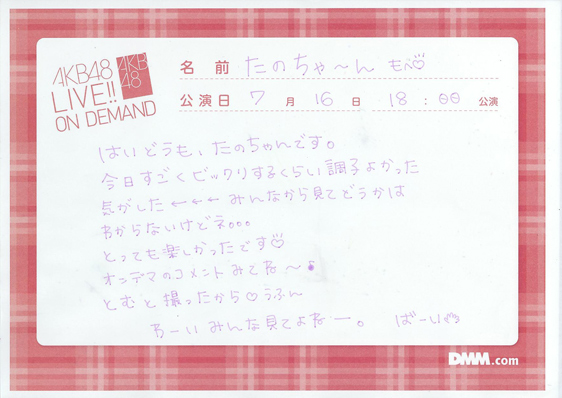 AKB48
LIVE!!
ON DEMAND
AKB
48
名 前 たのちゃ〜ん もべ♡
公演日 7 月 16 日 18 : 00 公演
はいどうも、たのちゃんです。
今日すごくビックリするくらい調子よかった
気がした←←← みんなから見てどうかは
わからないけどネ。。。
とっても楽しかったです♡
オンデマのコメントみてね〜♪
とむと撮ったから♡うふん
わーい みんな見てよねー。 ばーい
DMM.com